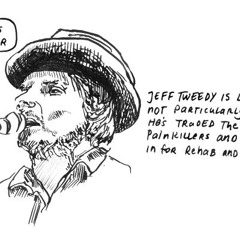 JEFF TWEEDY IS
NOT PARTICULARL
HE'S TRADED THE
PAINKILLERS AND
IN FOR REHAB AND